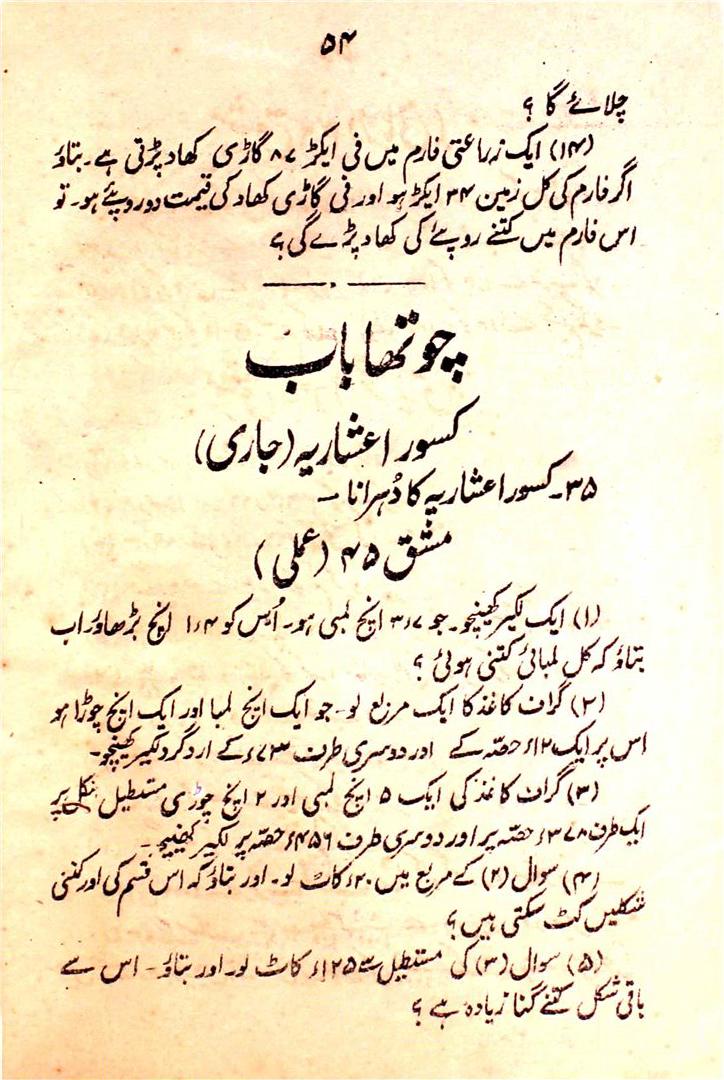 ۵۴
چلائے گا ؟
(۱۴) ایک زراعتی فارم میں فی ایکڑ ۸۷ گاڑی کھاد پڑتی ہے۔ بتاؤ
اگر فارم کی کل زمین ۳۴ ایکڑ ہو اور فی گاڑی کھاد کی قیمت دو روپئے ہو۔ تو
اس فارم میں کتنے روپئے کی کھاد پڑے گی ؟
چوتھا باب
کسور اعشاریہ (جاری)
۳۵۔ کسور اعشاریہ کا دُہرانا ۔
مشق ۴۵ (عملی)
(۱) ایک لکیر کھینچو۔ جو ۳ء۷ اینچ لمبی ہو۔ اُس کو ۱ء۴ اینچ بڑھاؤ اور اب
بتاؤ کہ کل لمبائی کتنی ہوئی ؟
(۲) گراف کاغذ کا ایک مربع لو۔ جو ایک اینچ لمبا اور ایک اینچ چوڑا ہو
اس پر ایک ء۱۲ حصّہ کے اور دوسری طرف ء۷۳ کے اردگرد لکیر کھینچو۔
(۳) گراف کاغذ کی ایک ۵ اینچ لمبی اور ۲ اینچ چوڑی مستطیل شکل پر
ایک طرف ء۳۷۸ حصّہ پر اور دوسری طرف ء۴۵۶ حصّہ پر لکیر کھینچو۔
(۴) سوال (۲) کے مربع میں ء۲۰ کاٹ لو۔ اور بتاؤ کہ اس قسم کی اور کتنی
شکلیں کٹ سکتی ہیں ؟
(۵) سوال (۳) کی مستطیل سے ء۱۲۵ کاٹ لو۔ اور بتاؤ۔ اس سے
باقی شکل کتنے گنا زیادہ ہے ؟